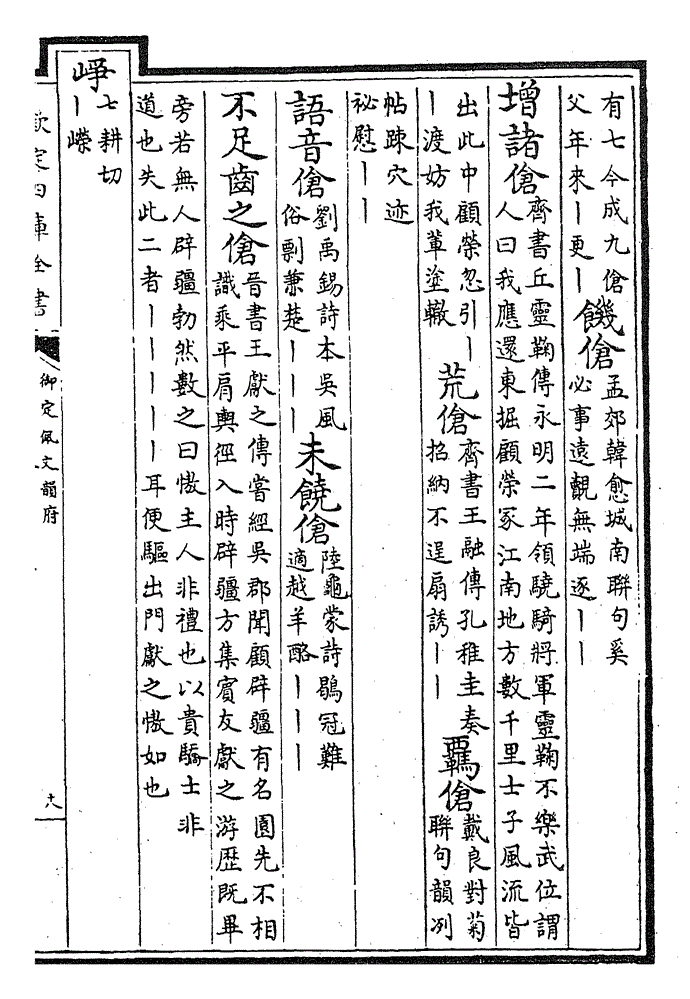 有七今成九傖
父年來｜更｜
饑傖
孟郊韓愈城南聯句奚
必事遠覿無端逐｜｜
增諸傖
齊書丘靈鞠傳永明二年領驍騎將軍靈鞠不樂武位謂
人曰我應還東掘顧榮冢江南地方數千里士子風流皆
出此中顧榮忽引｜
｜渡妨我輩塗轍
荒傖
齊書王融傳孔稚圭奏
招納不逞扇誘｜｜
羈傖
戴良對菊
聯句韻冽
帖踈穴迹
祕慰｜｜
語音傖
劉禹錫詩本吳風
俗剽兼楚｜｜｜
未饒傖
陸龜蒙詩鶡冠難
適越羊酪｜｜｜
不足齒之傖
晉書王獻之傳嘗經吳郡聞顧辟疆有名園先不相
識乘平肩輿徑入時辟疆方集賓友獻之游歴既畢
旁若無人辟疆勃然數之曰慠主人非禮也以貴驕士非
道也失此二者｜｜｜｜｜耳便驅出門獻之慠如也
崢
七耕切
｜嶸
欽定四庫全書
御定佩文韻府
十八